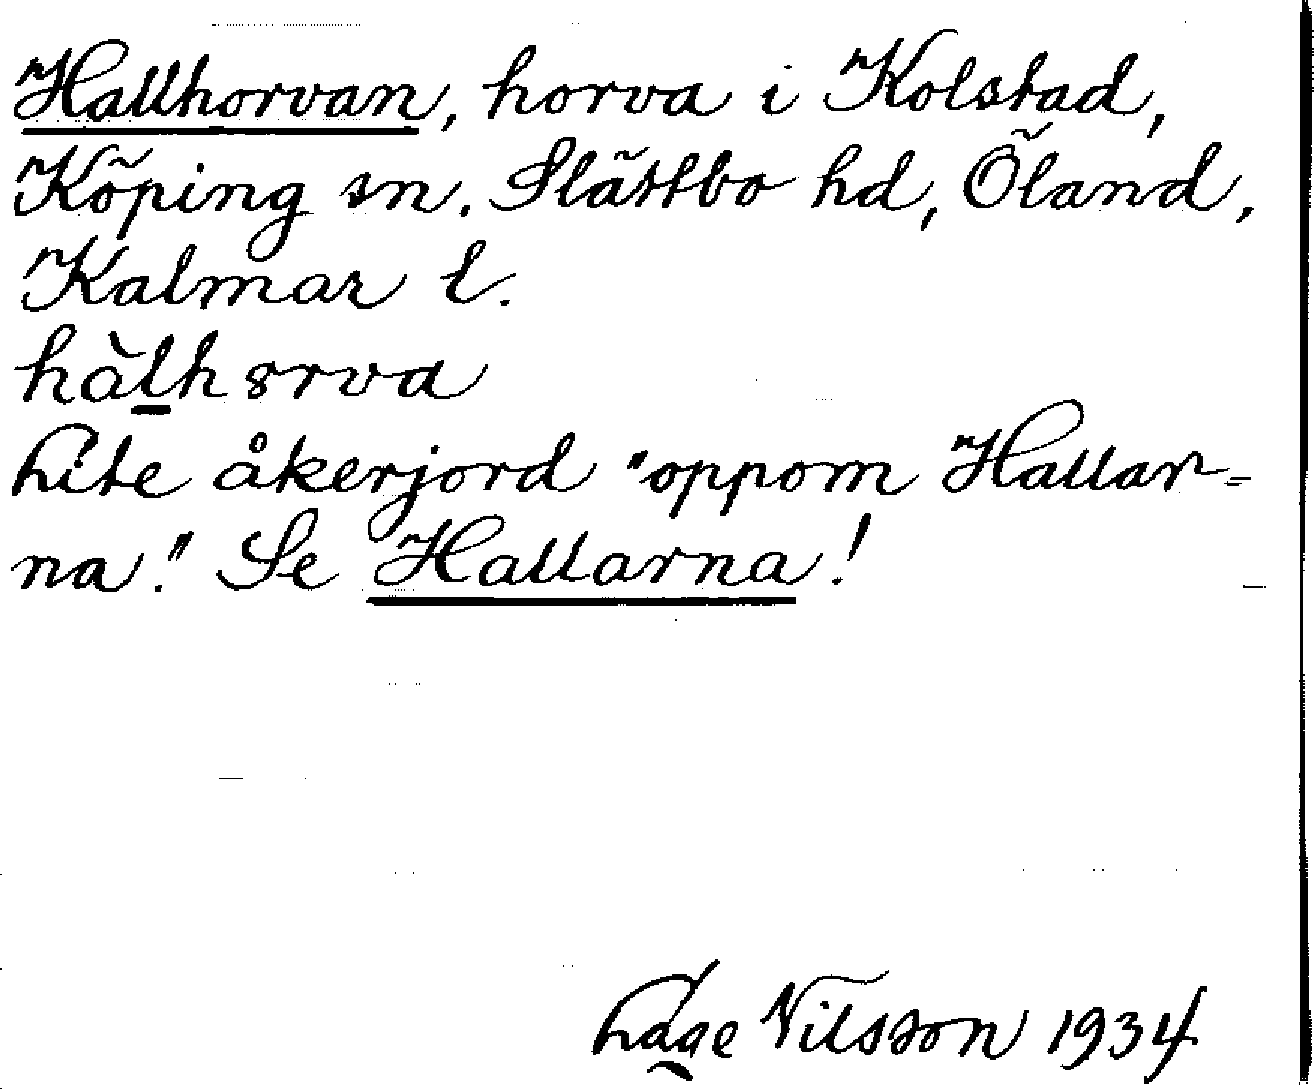 Hallhorvan, horva i Kolstad,
Köping sn. Slättbo hd, Öland,
Kalmar l.
hàlhsrva
Lite åkerjord "oppom Hallar=
na." Se Hallarna!
Lage Nilsson 1934